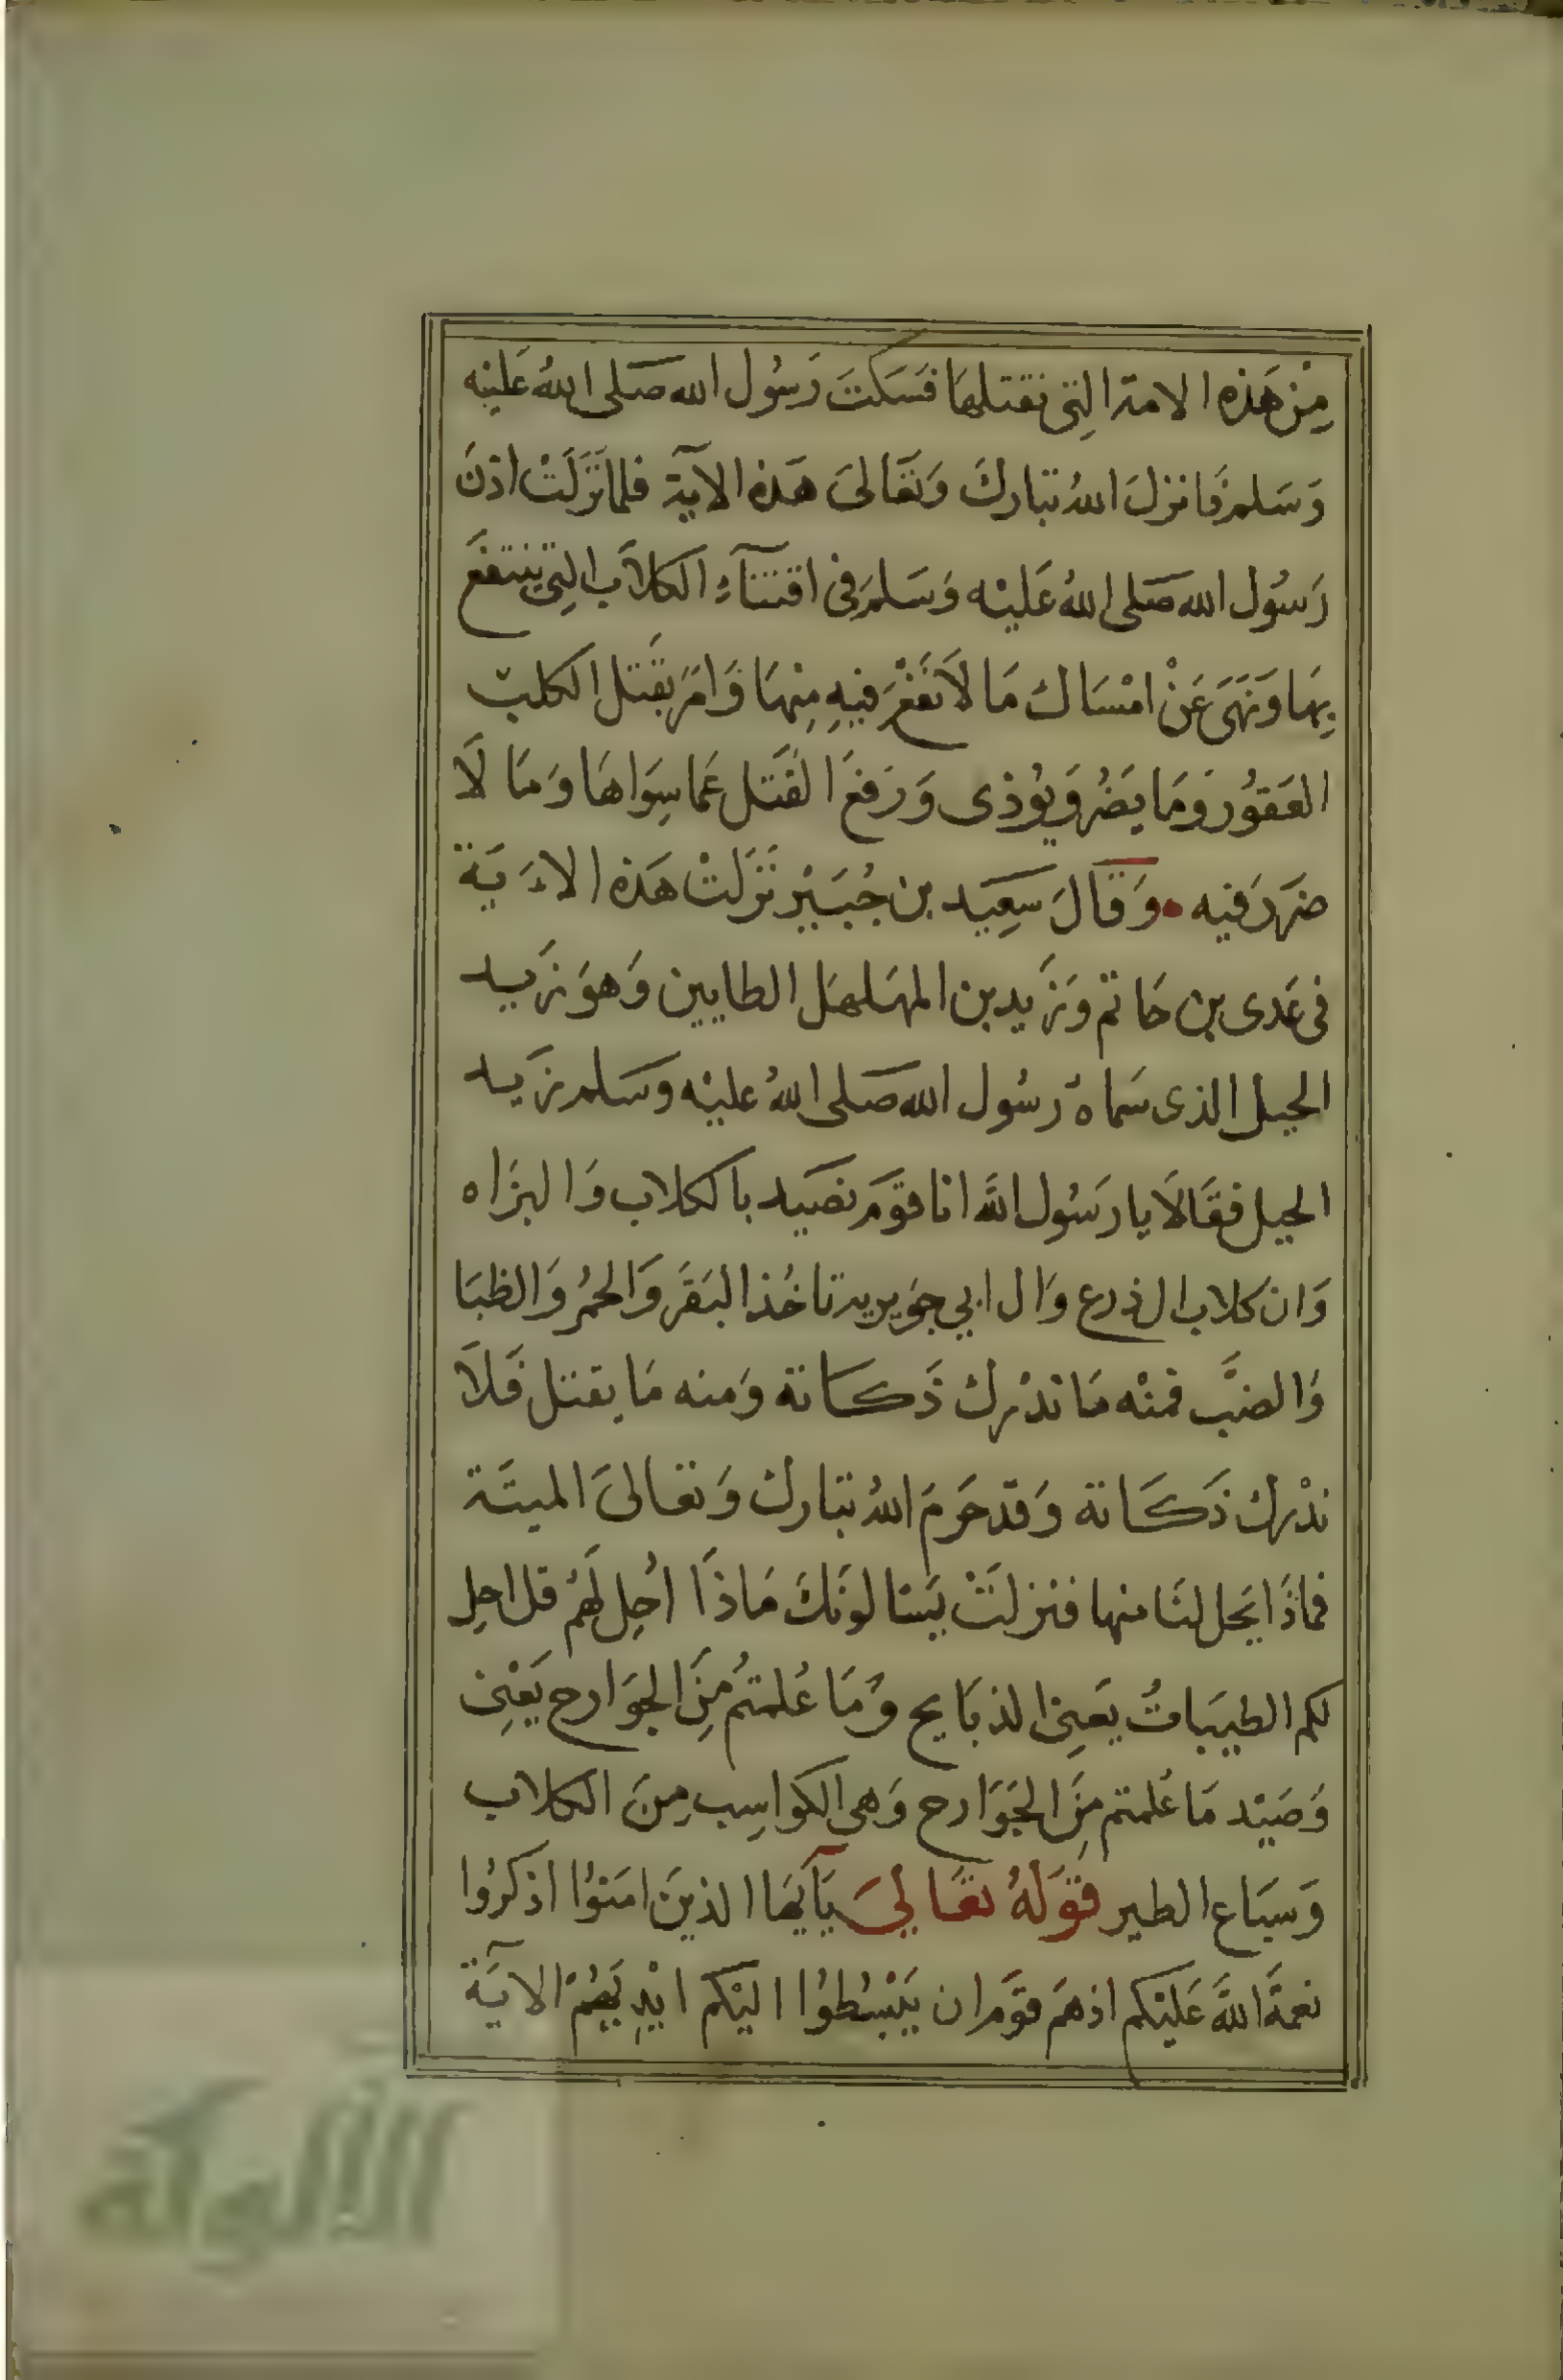 مِنْ هَذِه الامة الِتى نقتلهَا فَسَكتَ رَسُول الله صَلى اللهُ عَليْه
وَسَلمْ فَانزلَ اللهُ تبَاركَ وَتعَالىَ هَذه الآيَة فلما نَزَلَتْ اذنَ
رَسُول الله صَلى اللهُ عَليْه وَسَلمَ فى اقتنَآءِ الكلاَب الِتى ينتفَع
بِهَا وَنَهَى عَنْ امْسَاك مَا لاَ نَفْعَ فيهِ مِنهَا وَامَر بقَتل الكلب
العَقوُر وَمَا يَضُر وَيوُذى وَرَفعَ القَتل عَما سِوَاهَا وَمَا لَا
ضرَرَ فيه • وَقَالَ سَعِيَد بن جُبَيْر نَزَلتْ هَذه الاءَيَة
فى عَدى بن حَاتم وَزَيد بن المهَلهَل الطايين وَهوَ زَيد
الحيل الذى سَماهُ رَسُول الله صَلى اللهُ عليْه وسَلم زَيد
الحيل فقَالاَ يا رَسُول اللَّه انا قوَم نصَيد بالكلاب وَالبزَاه
وَان كلاب ال ذرع وَال ابي جوَيرية تاخُذ البَقَر وَالحمُر وَالظبَا
وَالضبَّ فمنْه مَا ندْرك ذَكَاته وَمنه مَا يقتل فَلاَ
ندْرك ذَكَاته وَقد حَرمَ اللهُ تبَارك وَتعَالىَ الميتَة
فماذَا يَحل لنَا منها فنزلَتْ يَسْالونَكَ مَاذَا اُحِل لَهُم قل احِل
لكم الطيبَاتُ يَعنِى الذبَايح وَمَا عُلمتمُ مِنَ الجوَارح يَعْنِى
وَصَيْد مَا عُلمتم مِنَ الجَوَارح وَهى الكوَاسِب مِنَ الكلاب
وَسبَاع الطير قوَلهُ تعَالىَ يَآيَهَا الذينَ امَنوُا اذكرُوا
نعمَةَ اللَّه عَليْكم اذ همَ قوَم ان يَبْسُطوُا اليْكم ايْدِيَهُمْ الآيَة
الألوكة